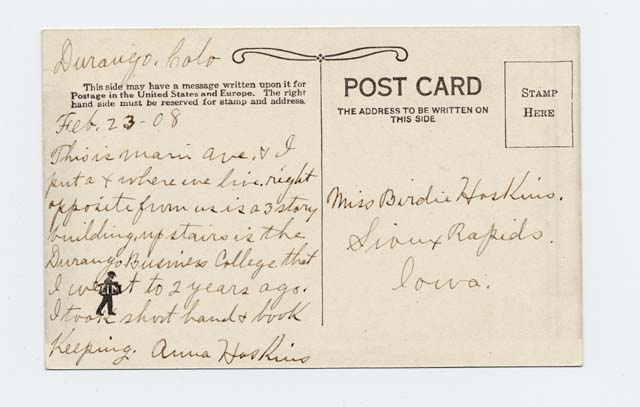 Durango, Colo
This side may have a message written upon it for
Postage in the United States and Europe. The right
hand side must be reserved for stamp and address.
Feb. 23-08
This is main ave. & I
put a x where we live. right
opposite from us is a 3 story
building, up stairs is the
Durango Business College that
I went to 2 years ago.
I took short hand & book
Keeping. Anna Hoskins
POST CARD
THE ADDRESS TO BE WRITTEN ON
THIS SIDE
STAMP
HERE
Miss Birdie Hoskins.
Sioux Rapids.
Iowa.